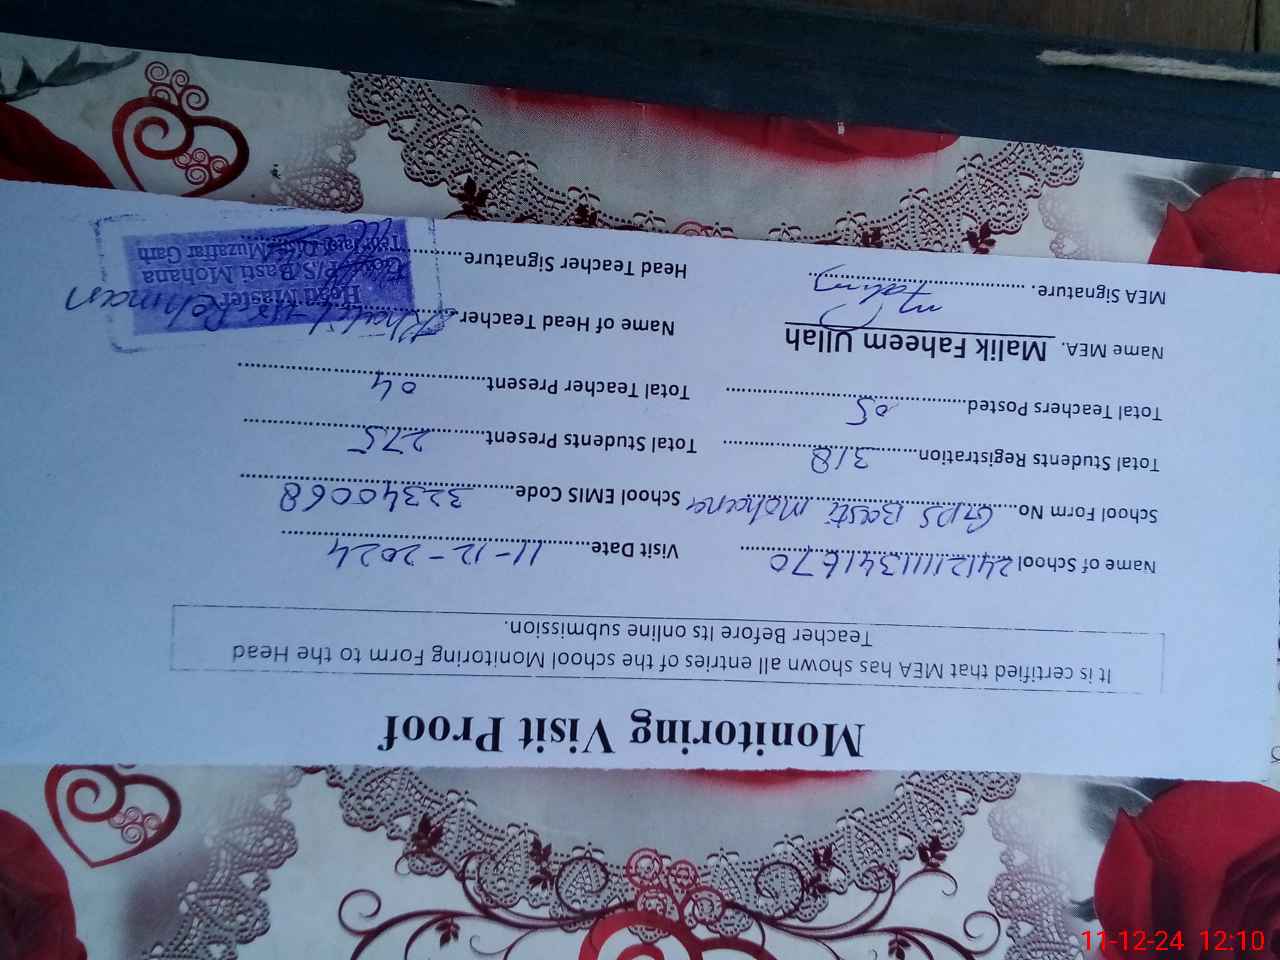 Monitoring Visit Proof
It is certified that MEA has shown all entries of the school Monitoring Form to the Head
Teacher Before Its online submission.
Name of School 24121111341670 Visit Date 11-12-2024
School Form No GPS Basti Mohana School EMIS Code 32340068
Total Students Registration 318 Total Students Present 275
Total Teachers Posted 05 Total Teacher Present 04
Name MEA. Malik Faheem Ullah Name of Head Teacher Khalil-ur-Rehman
MEA Signature. Head Teacher Signature
Head Master
P/S Basti Mohana
Teh: Muzaffar Garh
11-12-24 12:10